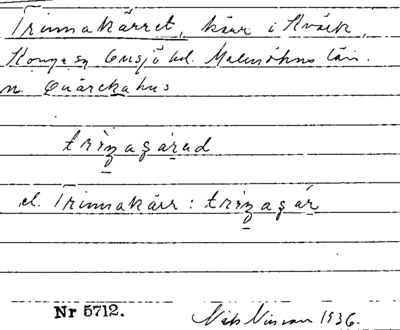 Trinnakärret, kärr i Kvärk,
Konga sn Onsjö hd. Malmöhus län.
n. Quärckahus
trin̲aʂärad
el. Trinnakärr: trin̲aʂär
Nr 5712.
Nils Nilsson 1936.